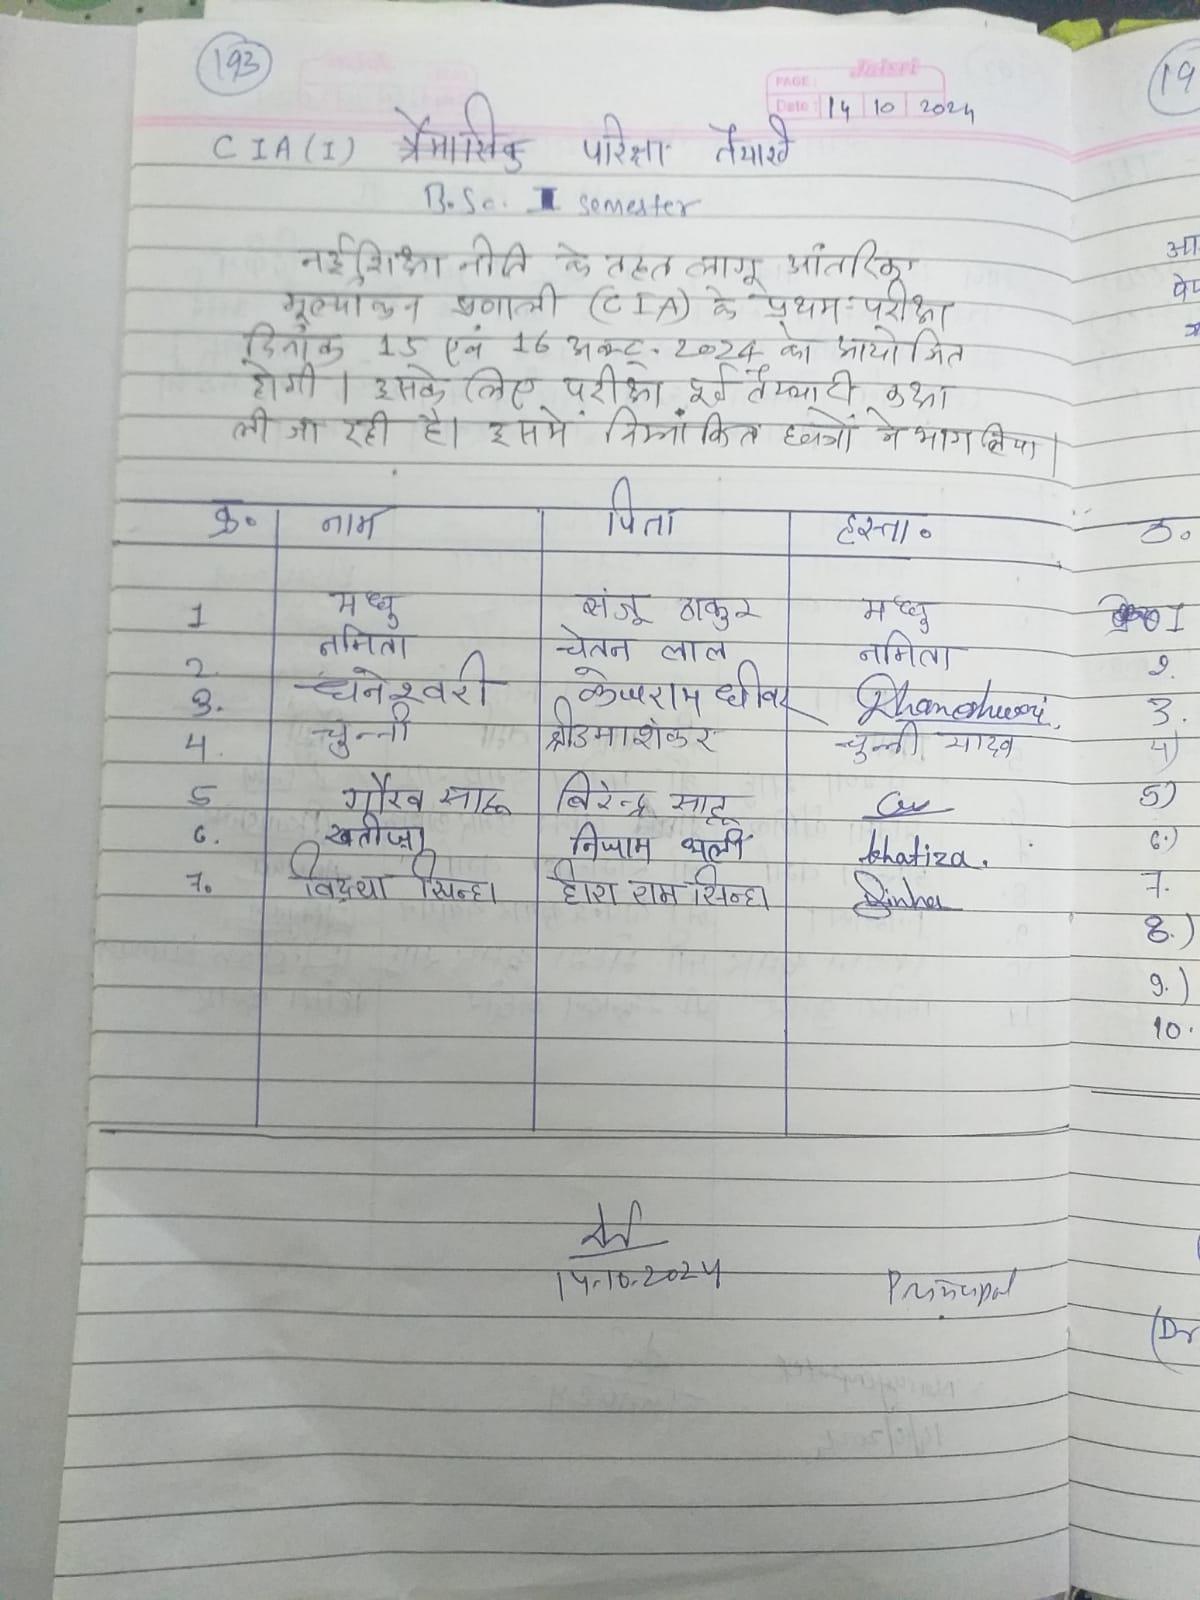 193
Jaisri
PAGE:
Date: 14 10 2024
CIA (I) त्रैमासिक परिक्षा तैयारी
B.Sc. I semester
नई शिक्षा नीति के तहत लागू आंतरिक
मूल्यांकन प्रणाली (CIA) के प्रथम परीक्षा
दिनांक 15 एवं 16 अक्टू. 2024 को आयोजित
होगी। इसके लिए परीक्षा पूर्व तैय्यारी कक्षा
ली जा रही है। इसमें निम्नांकित छात्रों ने भाग लिया।
क्र. नाम पिता हस्ता.
1 मधु संजू ठाकुर मधु
2. नमिता चेतन लाल नमिता
3. धनेश्वरी केजराम धीवर Dhaneshwari
4. चुन्नी श्री उमाशंकर चुन्नी यादव
5 गौरव साहू बिरेन्द्र साहू
6. खतीजा निजाम अली khatiza.
7. विद्या सिन्हा हीरा राम सिन्हा Sinha
14.10.2024
Principal
19
आ
क्र.
1
2.
3.
4)
5)
6.)
7.
8.)
9.)
10.
(Dr